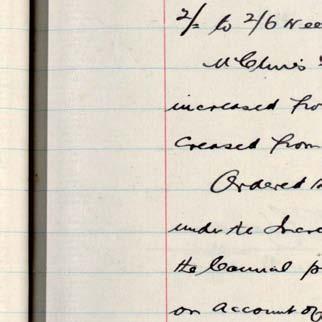 2/= to 2/6 Wee
McClure's
increased fro
creased from
Ordered
under the Incre
the Council p
on account of